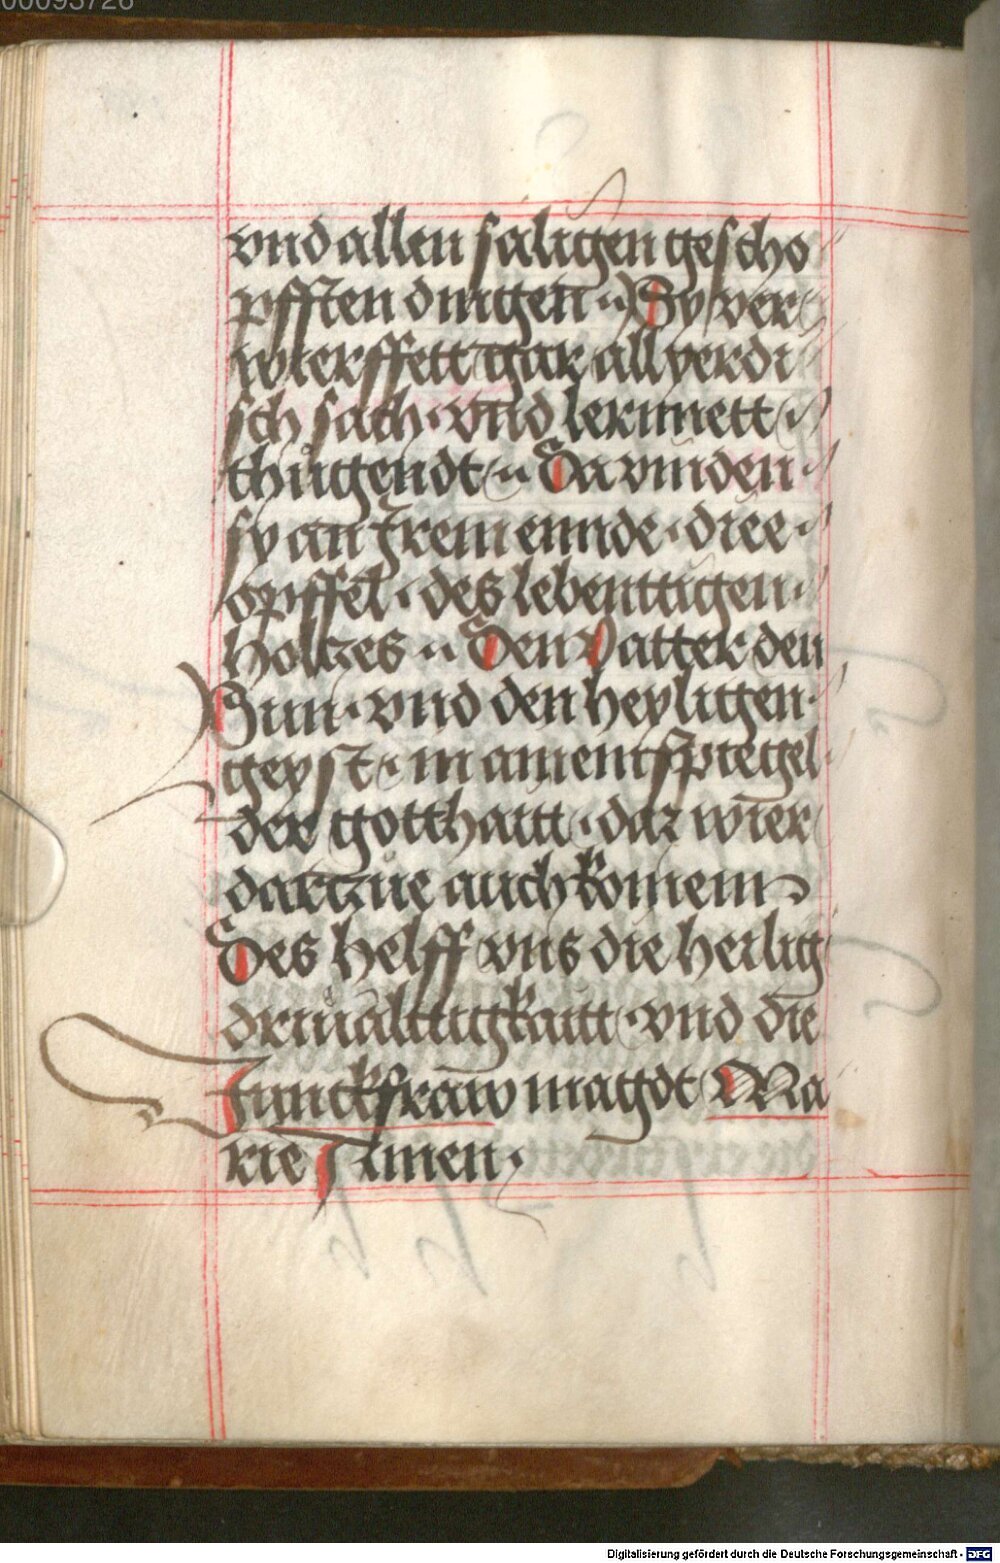 00093726
vnd allen säligen gescho
epfften dingen Sy ver
wierffett gar all yerdi
sch sach vnd lernnett
thůgendt Da vinden
sy an Irem ennde dree
opffel des lebenttigen
Holtzes Den Vatter den
Sun vnd den heyligen
geyst in ainem spiegel
der gotthaitt dar wier
dartzue auch komem
Des Helff vns die heilig
driualttigkaitt vnd die
Junckfraw magdt Ma
rie Amen
Digitalisierung gefördert durch die Deutsche Forschungsgemeinschaft - DFG